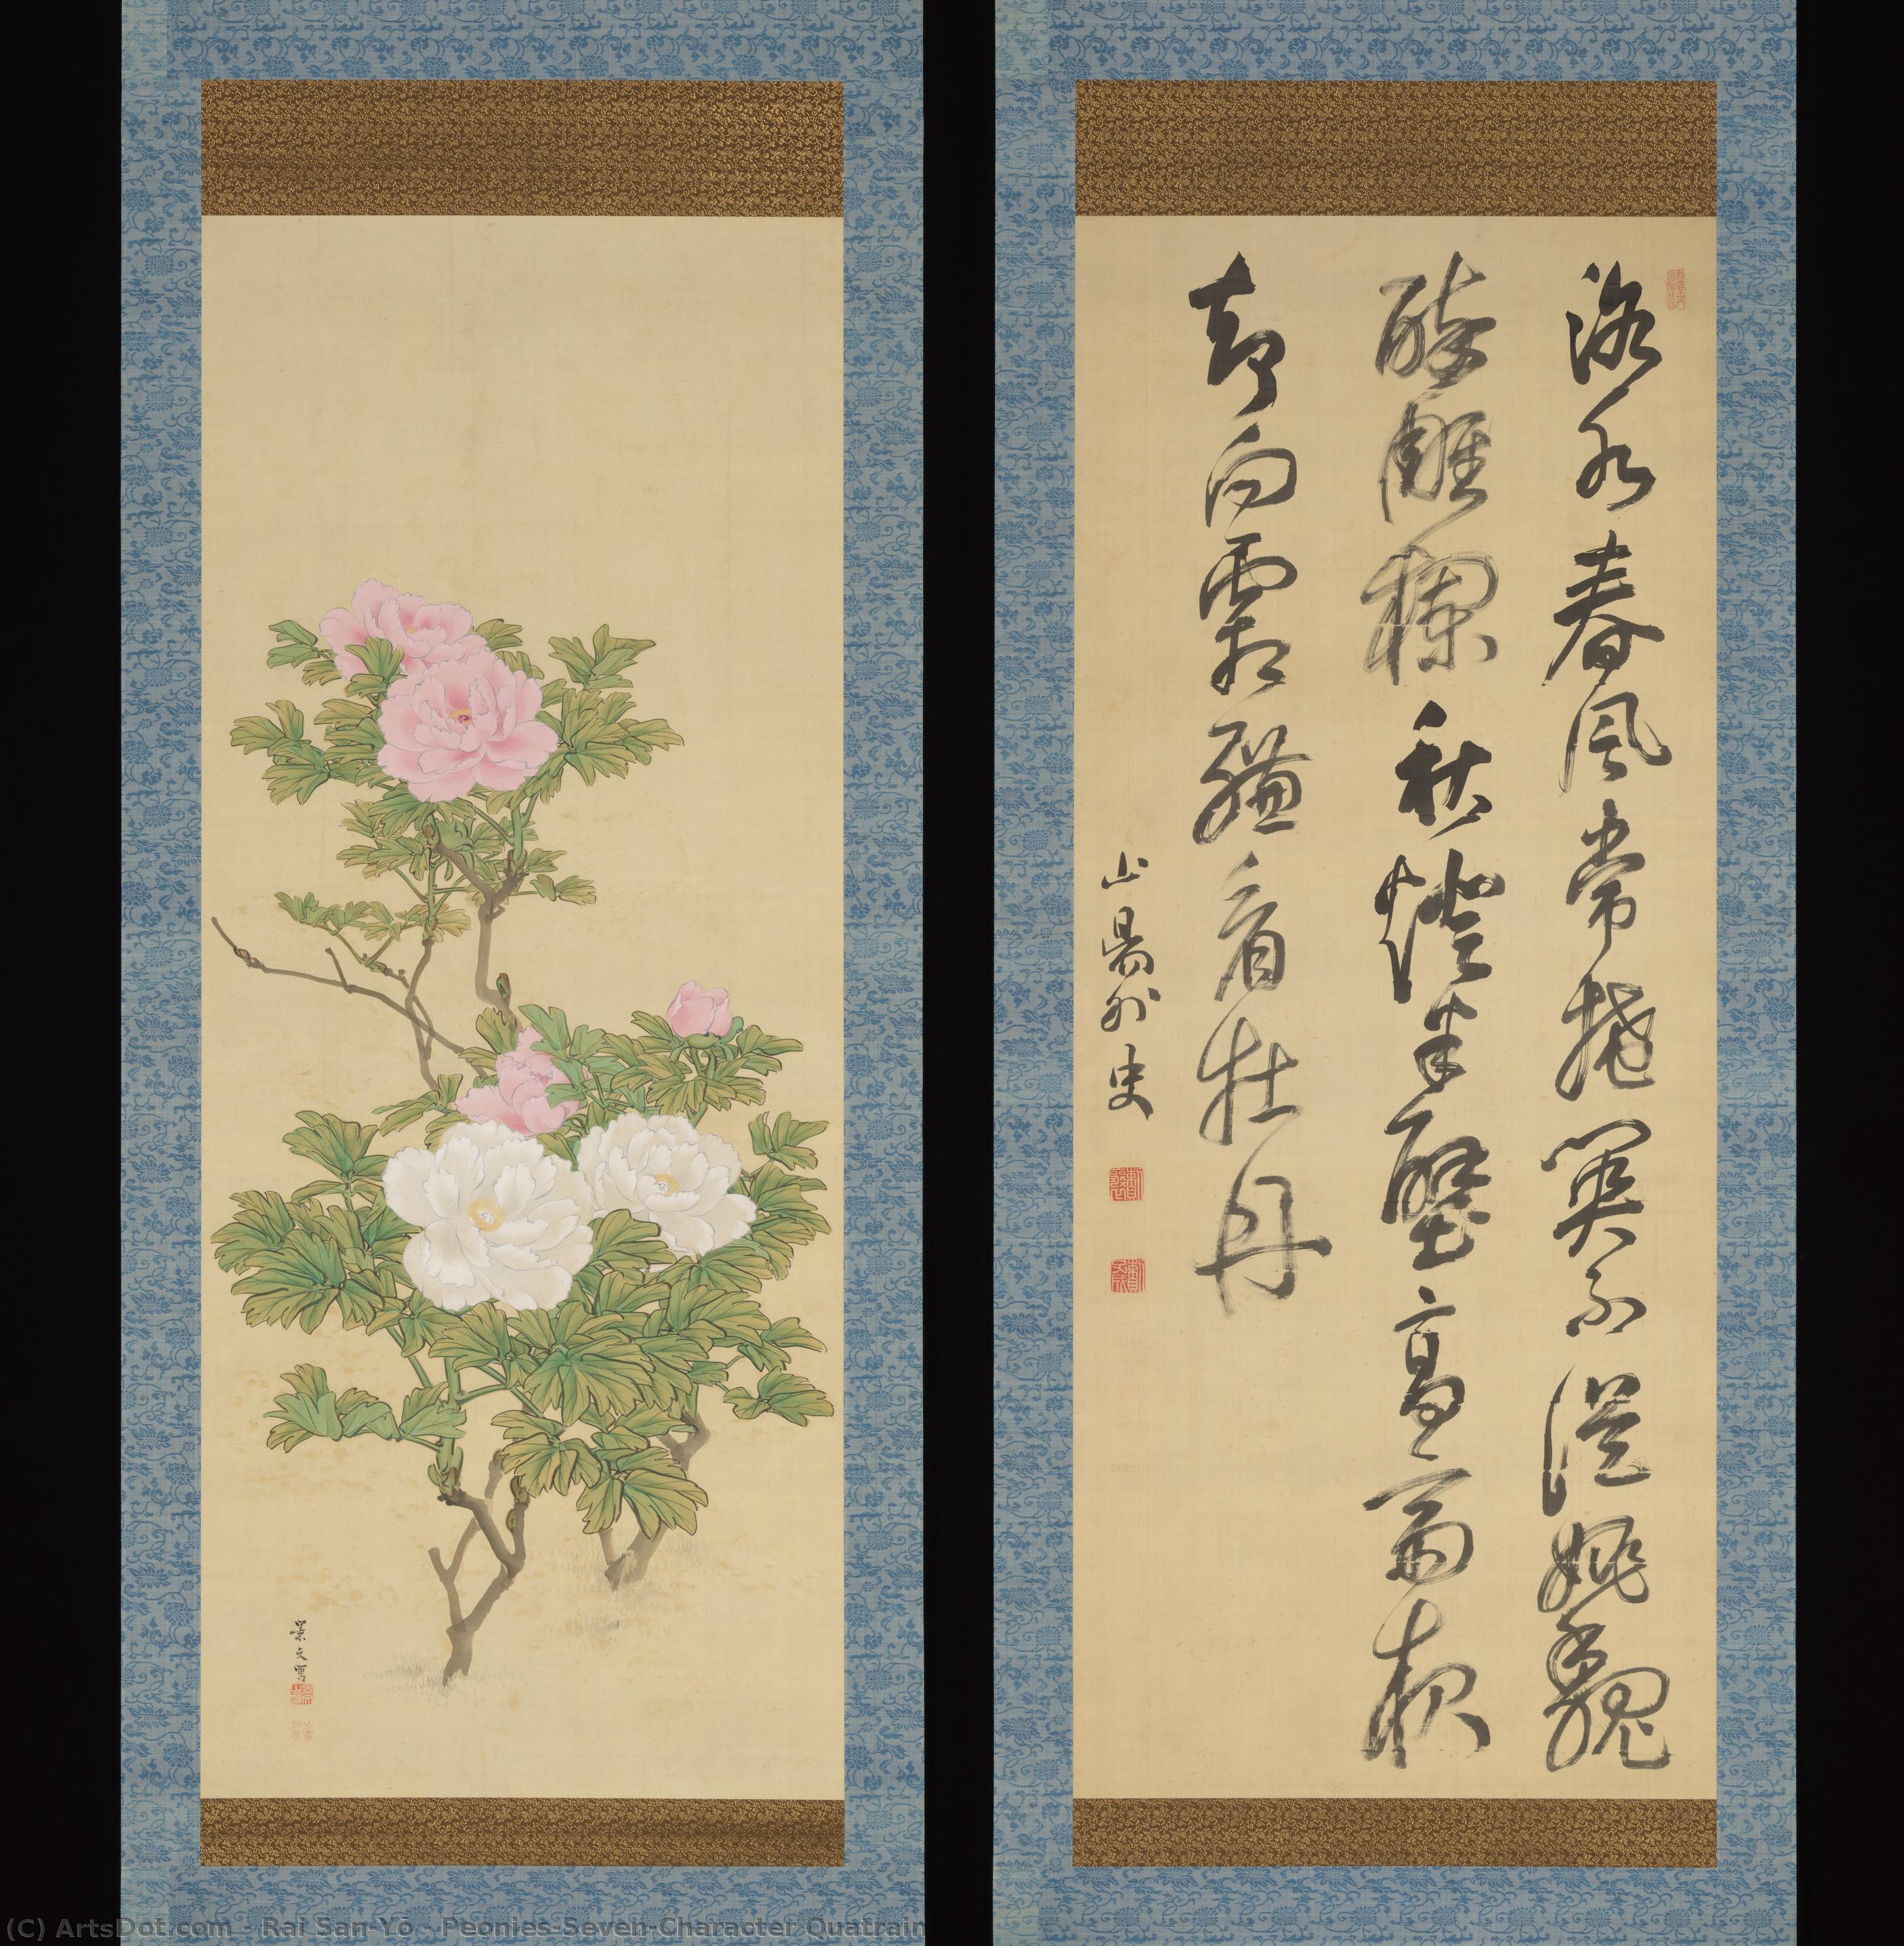 洛水春風常掩關不從姚魏
醉雕欄秋燈半壁高齋夜
却向霜縑看牡丹
山陽外史
景文寫
(C) ArtsDot.com - Rai San-Yō - Peonies-Seven-Character Quatrain